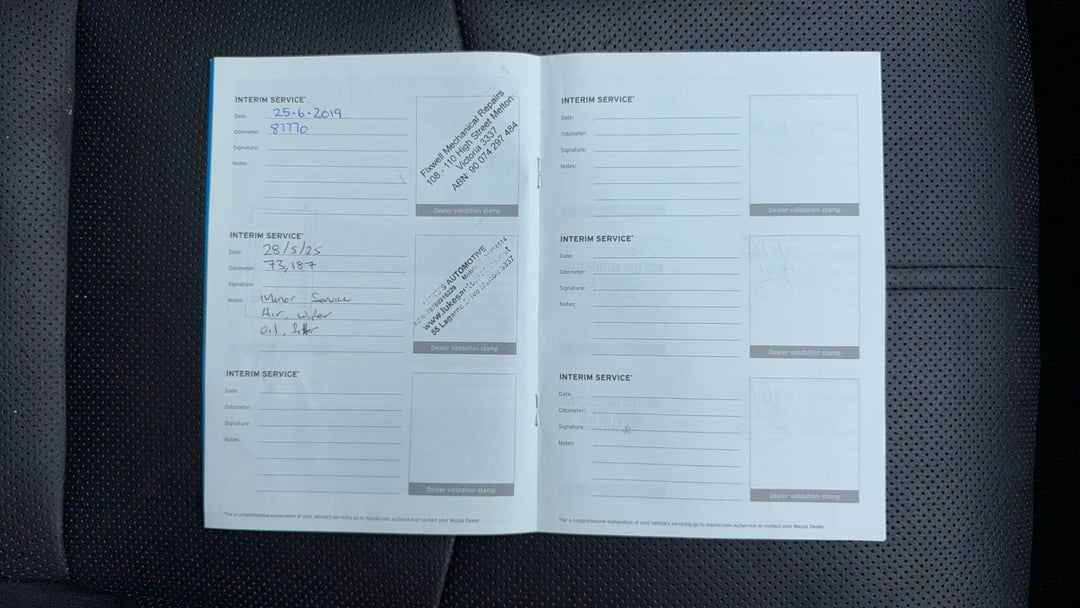 INTERIM SERVICE*
Date: 25-6-2019
Odometer: 87770
Signature:
Notes:
Fixwell Mechanical Repairs
108 - 110 High Street Melton
Victoria 3337
ABN: 90 074 297 484
Dealer validation stamp
INTERIM SERVICE*
Date: 28/5/25
Odometer: 73,187
Signature:
Notes: Minor Service
Air, wiper
Oil, filter
AUTOMOTIVE
55 Drive Melton 3337
Dealer validation stamp
INTERIM SERVICE*
Date:
Odometer:
Signature:
Notes:
Dealer validation stamp
*For a comprehensive explanation of your vehicle's servicing go to mazda.com.au/service or contact your Mazda Dealer
INTERIM SERVICE*
Date:
Odometer:
Signature:
Notes:
Dealer validation stamp
INTERIM SERVICE*
Date:
Odometer:
Signature:
Notes:
Dealer validation stamp
INTERIM SERVICE*
Date:
Odometer:
Signature:
Notes:
Dealer validation stamp
*For a comprehensive explanation of your vehicle's servicing go to mazda.com.au/service or contact your Mazda Dealer